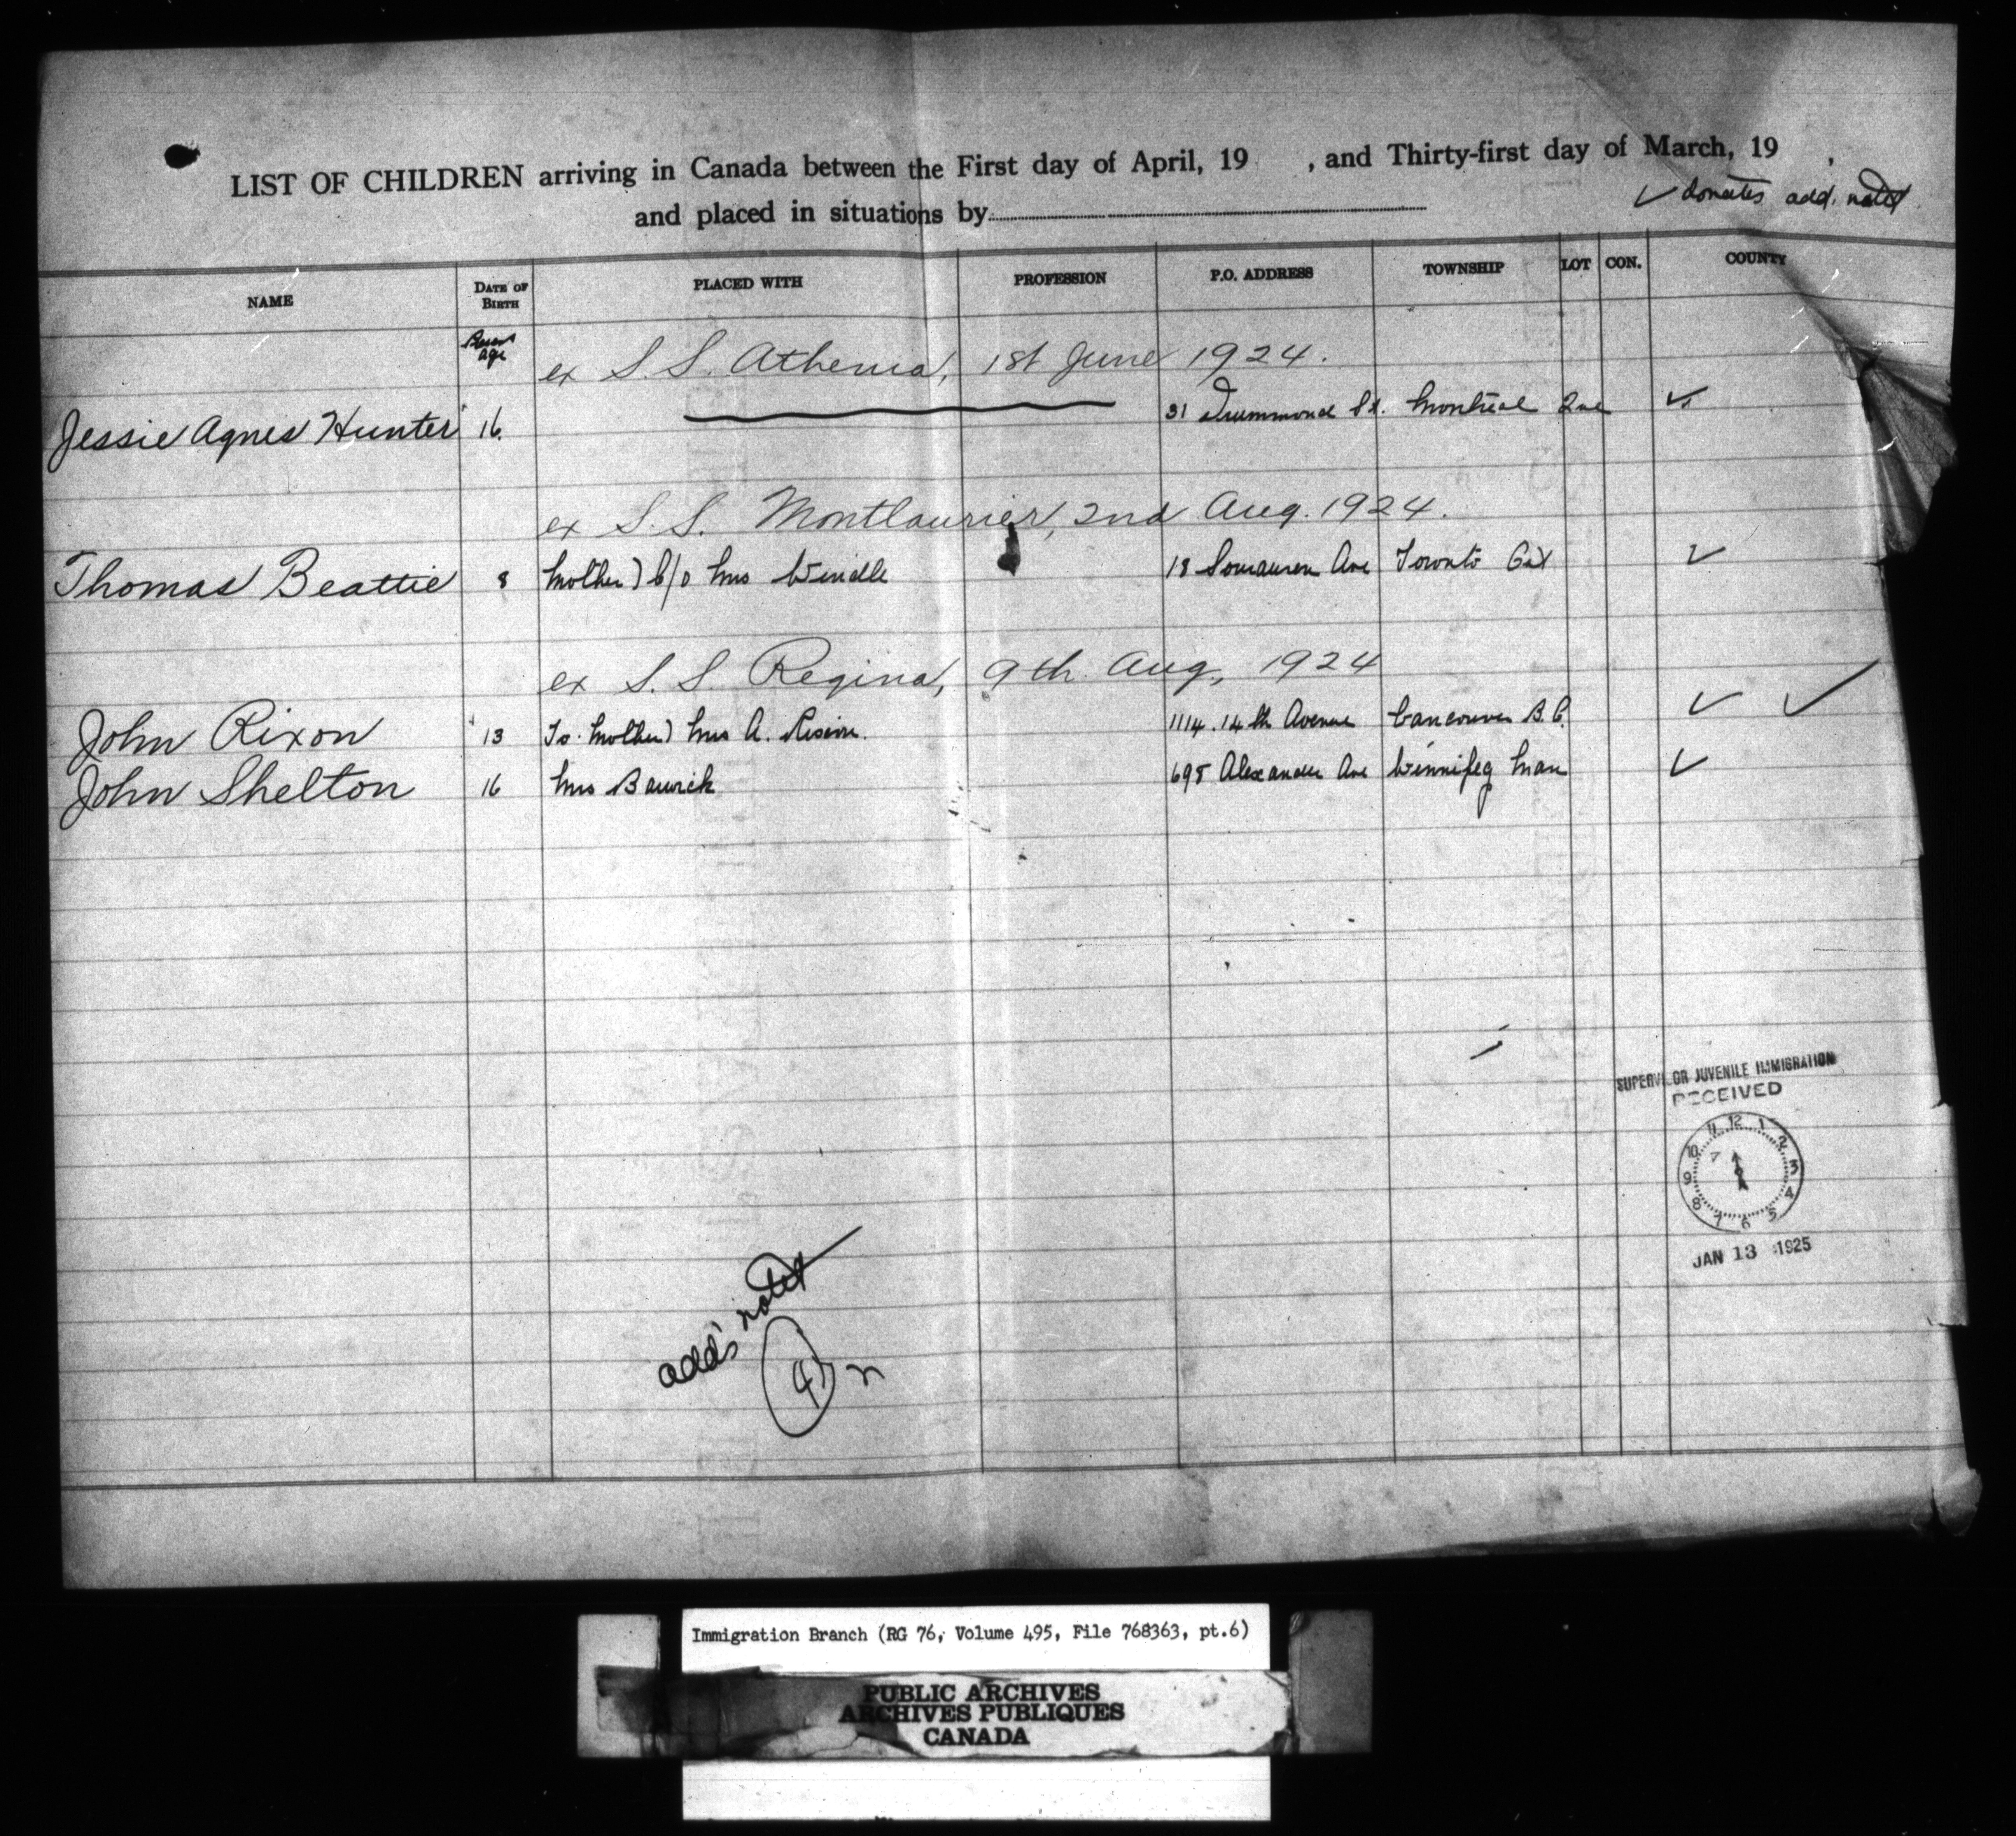 LIST OF CHILDREN arriving in Canada between the First day of April, 19 , and Thirty-first day of March, 19 ,
and placed in situations by
✓ donates add. noted
NAME DATE OF BIRTH PLACED WITH PROFESSION P.O. ADDRESS TOWNSHIP LOT CON. COUNTY
age
ex S.S. Athenia, 1st June 1924.
Jessie Agnes Hunter 16. 31 Drummond St. Montreal Que ✓
ex S.S. Montlaurier, 2nd Aug. 1924.
Thomas Beattie 8 Mother) C/o Mrs Windle 18 Sorauren Ave Toronto Ont ✓
ex S.S. Regina, 9th Aug, 1924
John Rixon 13 To Mother) Mrs A. 1114. 14th Avenue Vancouver B.C. ✓ ✓
John Shelton 16 Mrs Barwick 698 Alexander Ave Winnipeg Man ✓
SUPERVISOR JUVENILE IMMIGRATION
RECEIVED
12 1 2 3 4 5 6 7 8 9 10 11
JAN 13 1925
add's noted
4
Immigration Branch (RG 76, Volume 495, File 768363, pt.6)
PUBLIC ARCHIVES
ARCHIVES PUBLIQUES
CANADA